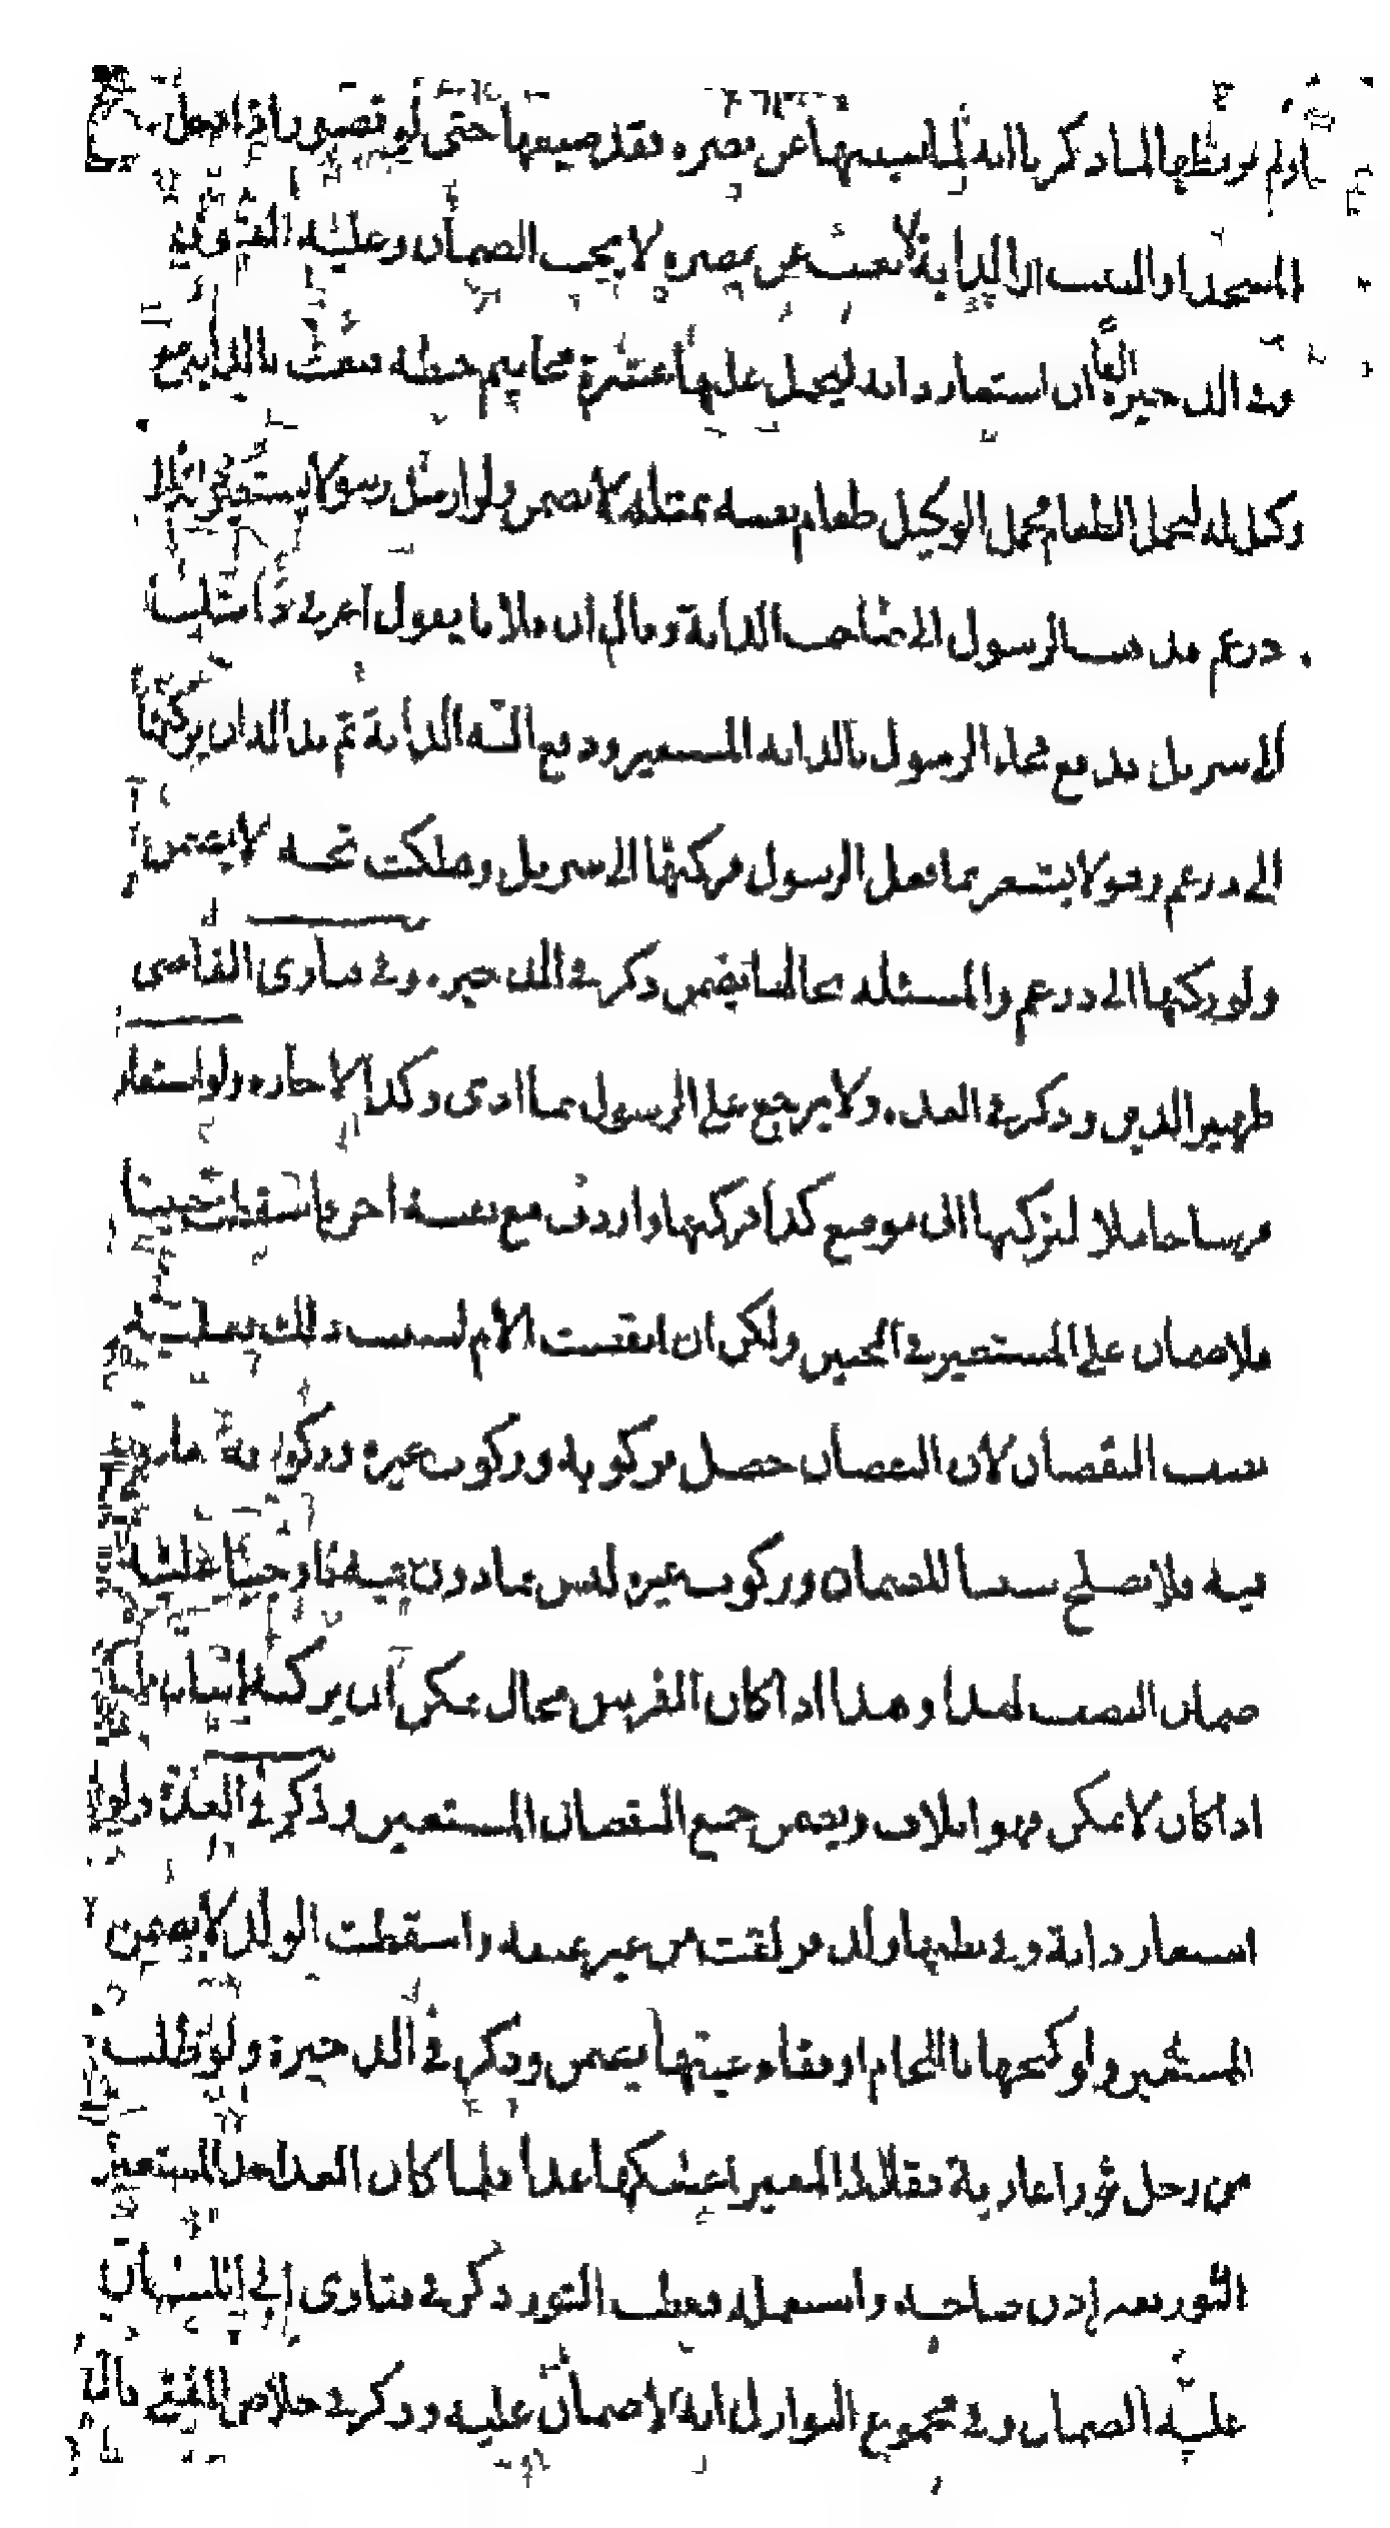 اولم يربطها لما ذكرنا انه لما غيبها عن بصره فقد ضيعها حتى لو تصور انه اذا دخل
المسجد او البيت والدابة لا تغيب عن بصره لا يجب الضمان وعليه الفتوى
وفي الذخيرة ايضا ان استعار دابة ليحمل عليها عشرة مخاتيم حنطة فبعث بالدابة مع
وكيل له ليحمل الطعام فحمل الوكيل طعام نفسه مثله لا يضمن ولو ارسل رسولا يستعير له دابة الى
درغم فذهب الرسول الى صاحب الدابة وقال ان فلانا يقول اعرني دابتك
الى سربل فدفع فجاء الرسول بالدابة المستعير ودفع اليه الدابة ثم بدا له ان يركبها
الى درغم وهو لا يشعر بما فعل الرسول فركبها الى سربل وهلكت تحته لا يضمن
ولو ركبها الى درغم والمسئلة بحالها يضمن ذكر في الذخيرة وفي فتاوى القاضي
ظهير الدين وذكر في العدة ولا يرجع على الرسول بما ادى وكذا الاجارة ولو استعار
فرسا حاملا ليركبها الى موضع كذا فركبها واردف مع نفسه اخر فاسقطت جنينا
فلا ضمان على المستعير في الجنين ولكن ان انتقصت الام بسبب ذلك فعليه
نصف النقصان لان النقصان حصل بركوبه وركوب غيره وركوبه مأذون
فيه فلا يصلح سببا للضمان وركوب غيره ليس بمأذون فيه فاوجبنا عليه
ضمان النصف لهذا وهذا اذا كان الفرس بحال يمكن ان يركبه اثنان فاما
اذا كان لا يمكن فهو اتلاف ويضمن جميع النقصان المستعير وذكر في العدة ولو
استعار دابة وفي بطنها ولد فزلقت من غير عنفه واسقطت الولد لا يضمن
المستعير ولو كبحها باللجام او فقاء عينها يضمن وذكر في الذخيرة ولو طلب
من رجل ثورا عارية فقال له المعير اعيركها غدا فلما كان الغد اخذ المستعير
الثور بغير اذن صاحبه واستعمله فعطب الثور ذكر في فتاوى ابي الليث ان
عليه الضمان وفي مجموع النوازل انه لا ضمان عليه وذكر في خلاص المفتي قال